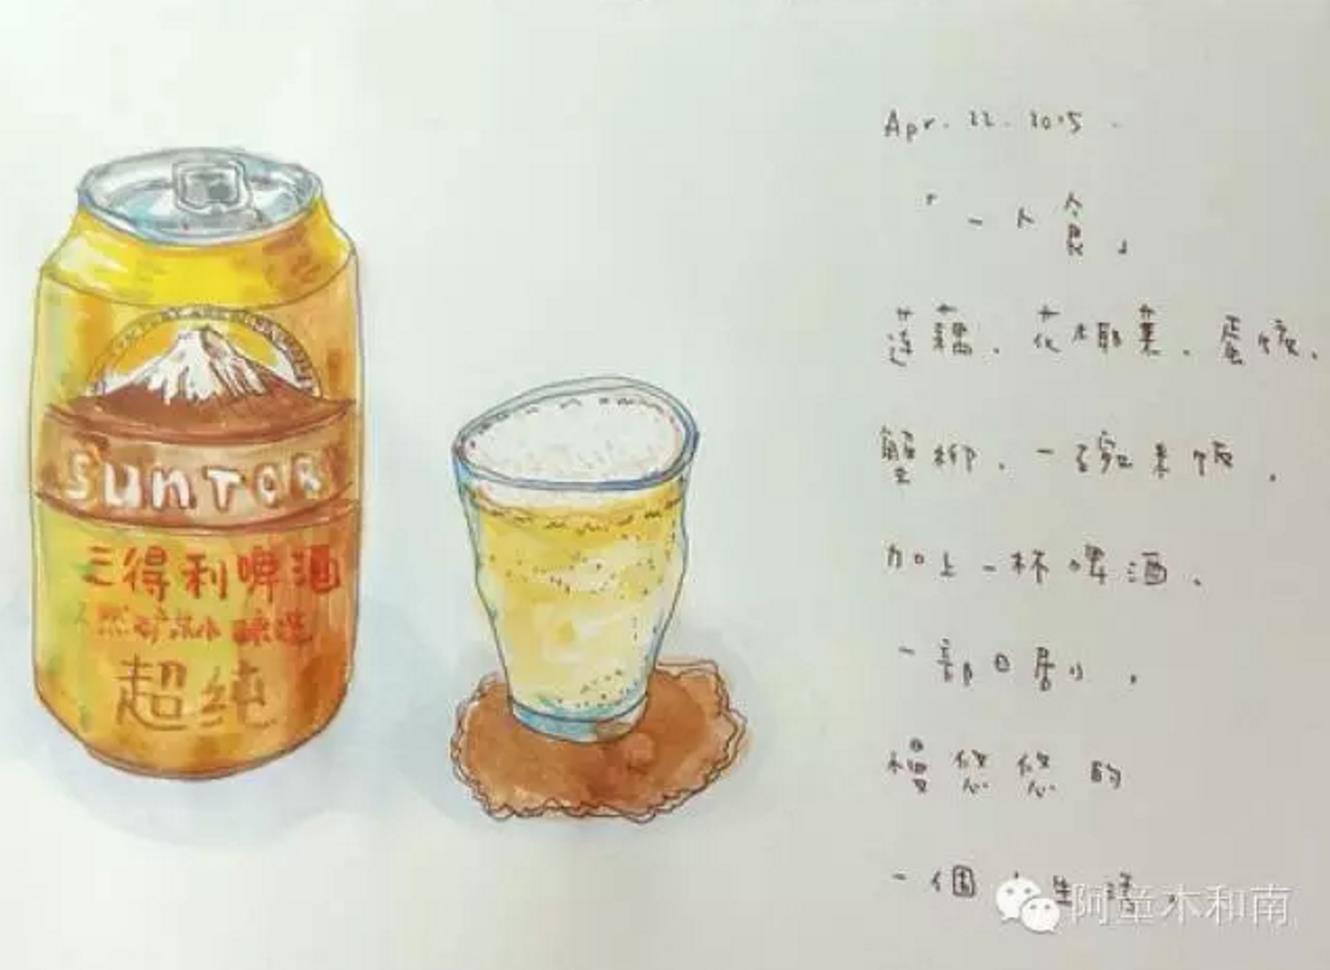 SUNTOR
三得利啤酒
然矿泉水酿造
超纯
Apr. 22. 2015.
「一人食」
莲藕、花椰菜、蛋饺、
蟹柳、一碗米饭,
加上一杯啤酒、
一部日剧,
慢悠悠的
一個人生活,
阿童木和南